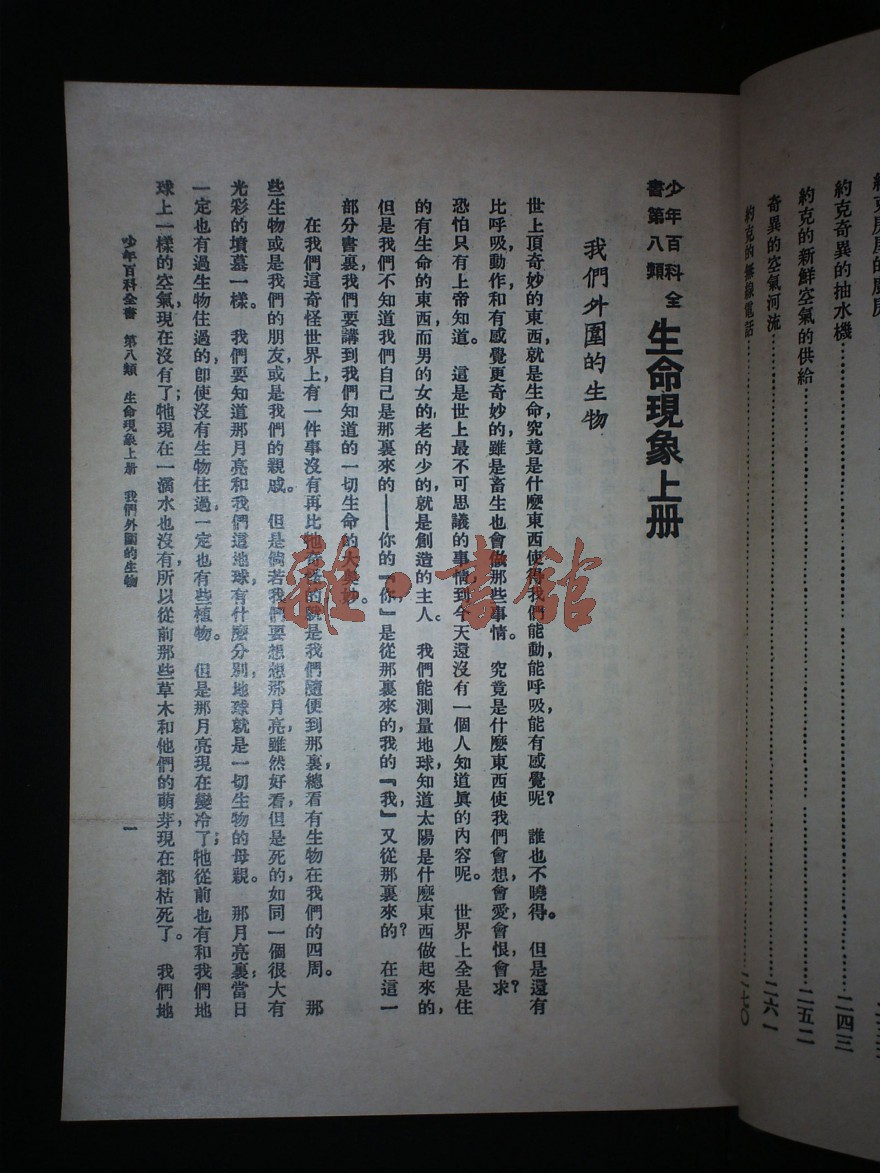 約克奇異的抽水機……二四三
約克的新鮮空氣的供給……二五二
奇異的空氣河流……二六一
約克的無線電話……二七〇
少年百科全書第八類 生命現象上册
我們外圍的生物
世上頂奇妙的東西,就是生命究竟是什麼東西使得我們能動,能呼吸,能有感覺呢? 誰也不曉得。 但是還有
比呼吸,動作和有感覺更奇妙的,雖是畜生也會做那些事情。 究竟是什麼東西使我們會想,會愛,會恨,會求?
恐怕只有上帝知道。 這是世上最不可思議的事情,到今天還沒有一個人知道眞的內容呢。 世界上全是住
的有生命的東西,而男的女的,老的少的,就是創造的主人。 我們能測量地球,知道太陽是什麼東西做起來的,
但是我們不知道我們自己是那裏來的——你的『你』是從那裏來的,我的『我』又從那裏來的? 在這一
部分書裏,我們要講到我們知道的一切生命的大奧妙。
在我們這奇怪世界上,有一件事沒有再比牠奇怪的,就是我們隨便到那裏,總看有生物在我們的四周。 那
些生物或是我們的朋友,或是我們的親戚。 但是倘若我們要想想那月亮,雖然好看,但是死的,如同一個很大有
光彩的墳墓一樣。 我們要知道那月亮和我們這地球,有什麼分別,地球就是一切生物的母親。 那月亮裏,當日
一定也有過生物住過的,卽使沒有生物住過,一定也有些植物。 但是那月亮現在變冷了;牠從前也有和我們地
球上一樣的空氣,現在沒有了;牠現在一滴水也沒有,所以從前那些草木和他們的萌芽,現在都枯死了。 我們地
少年百科全書 第八類 生命現象上册 我們外圍的生物 一
雜·書館